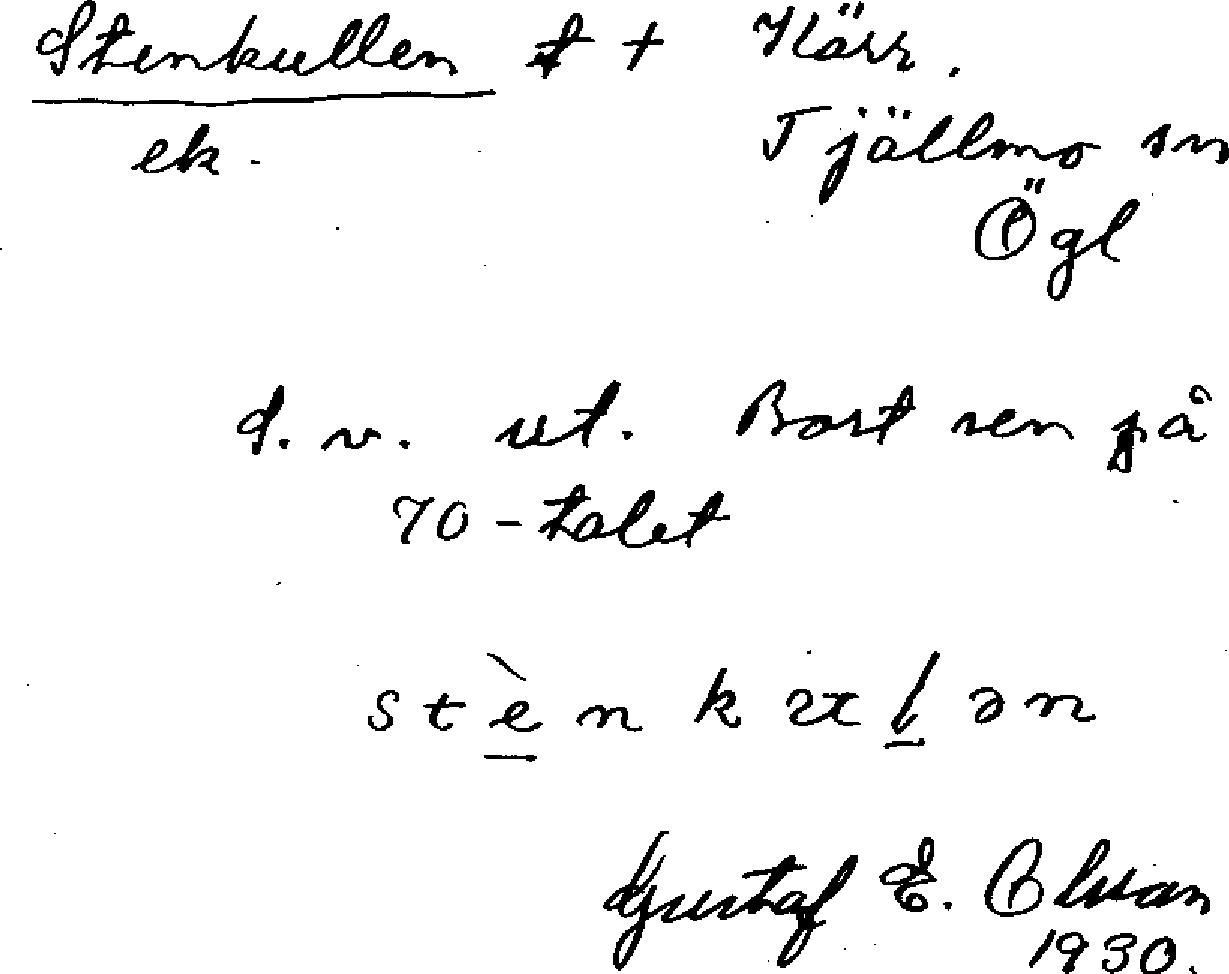 Stenkullen t + Kärr.
ek. Tjällmo sn
Ögl
d. v. ut. Bort sen på
70-talet
stènkɷlən
Gustaf E. Olsson
1930.